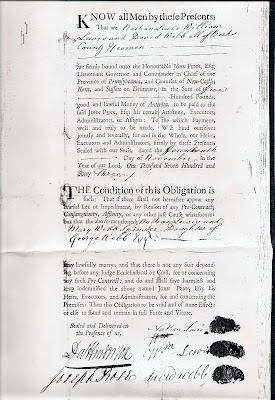 KNOW all Men by these Presents,
That We Nathan Lewis William
Lewis and David Webb all of Bucks
County Yeomen
are firmly bound unto the Honourable JOHN PENN, Esq;
Lieutenant Governor and Commander in Chief of the
Province of Pennsylvania, and Counties of New-Castle,
Kent, and Sussex on Delaware, in the Sum of Five
Hundred Pounds,
good and lawful Money of America, to be paid to the
said JOHN PENN, Esq; his certain Attorney, Executors,
Administrators, or Assigns: To the which Payment,
well and truly to be made, WE bind ourselves
jointly and severally, for and in the Whole, our Heirs,
Executors and Administrators, firmly by these Presents.
Sealed with our Seals, dated the
Day of November In the
Year of our Lord, One Thousand Seven Hundred and
Sixty Three
THE Condition of this Obligation is
such; That if there shall not hereafter appear any
lawful Let or Impediment, by Reason of any Pre-Contract,
Consanguinity, Affinity, or any other just Cause whatsoever;
but that the above-mentioned Nathan Lewis and
Mary Webb Spinster Daughter of
George Webb Esqr
may lawfully marry: and that there is not any Suit depend-
ing before any Judge Ecclesiastical or Civil, for or concerning
any such Pre-Contract: and do and shall save harmless and
keep indemnified the above named JOHN PENN, Esq; his
Heirs, Executors, and Administrators, for and concerning the
Premisses; Then this Obligation to be void and of none Effect;
or else to stand and remain in full Force and Virtue.
Sealed and Delivered in
the Presence of us,
Nathan Lewis
Wm Lewis
Joseph
David Webb